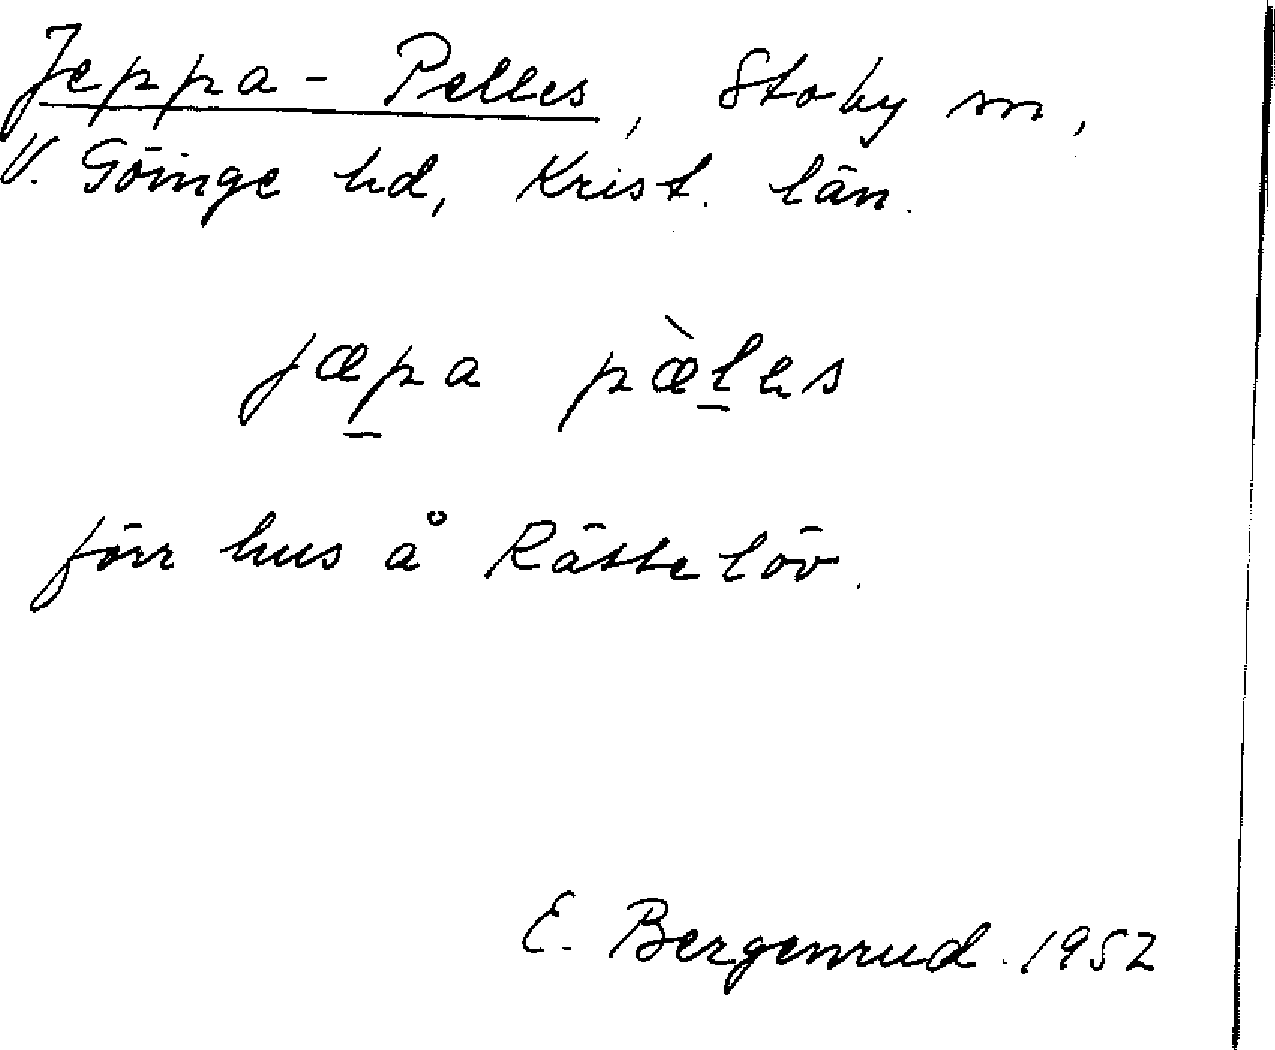 Jeppa-Pelles, Stoby sn,
V. Göinge hd, Krist. län.
jæp̲a pæ̀l̲es
förr hus å Rättelöv.
E. Bergenrud. 1952